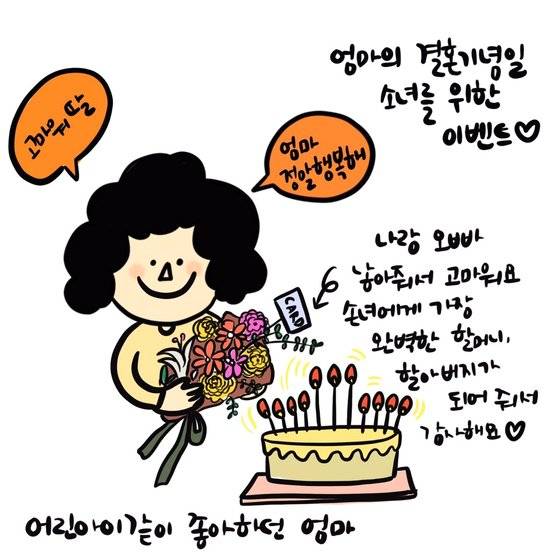 엄마의 결혼기념일
소녀를 위한
이벤트♡
고마워 딸
엄마
정말행복해
나랑 오빠
낳아줘서 고마워요
손녀에게 가장
완벽한 할머니,
할아버지가
되어 주셔서
감사해요♡
CARD
어린아이같이 좋아하던 엄마